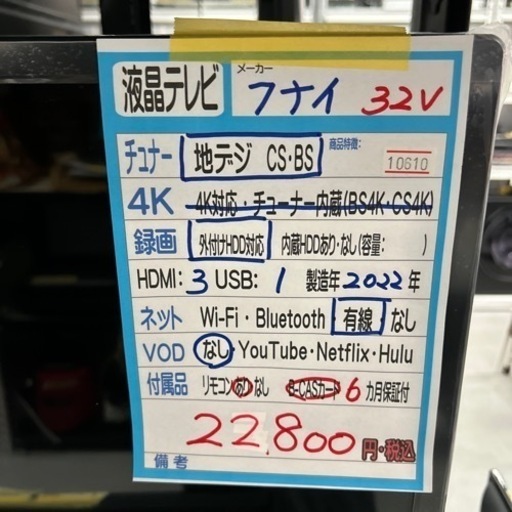 液晶テレビ メーカー フナイ 32V
チュナー 地デジ CS・BS 商品特徴: 10610
4K 4K対応・チューナー内蔵(BS4K・CS4K)
録画 外付けHDD対応 内蔵HDDあり・なし(容量: )
HDMI: 3 USB: 1 製造年2022年
ネット Wi-Fi・Bluetooth 有線 なし
VOD なし・YouTube・Netflix・Hulu
付属品 リモコンあり・なし B-CASカード 6カ月保証付
22,800円・税込
備考